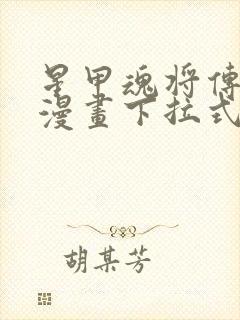 星甲魂将傳
漫畫下拉式
胡某芳